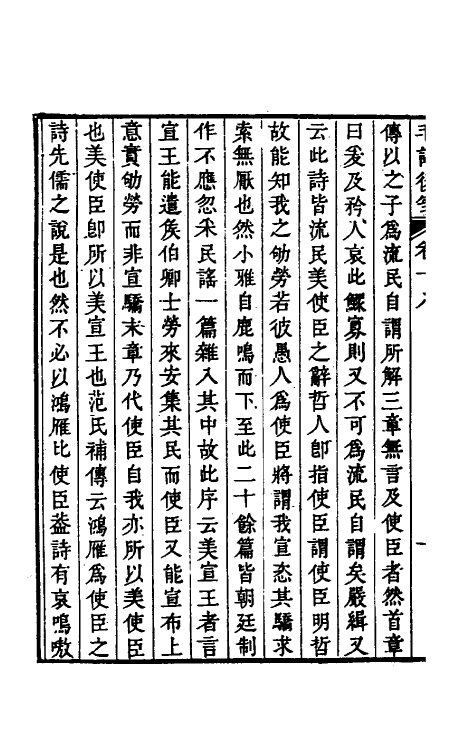 毛詩後箋 卷十八 一
傳以之子爲流民自謂所解三章無言及使臣者然首章
曰爰及矜人哀此鰥寡則又不可爲流民自謂矣嚴緝又
云此詩皆流民美使臣之辭哲人卽指使臣謂使臣明哲
故能知我之劬勞若彼愚人爲使臣將謂我宣恣其驕求
索無厭也然小雅自鹿鳴而下至此二十餘篇皆朝廷制
作不應忽采民謠一篇雜入其中故此序云美宣王者言
宣王能遣矦伯卿士勞來安集其民而使臣又能宣布上
意賁劬勞而非宣驕末章乃代使臣自我亦所以美使臣
也美使臣卽所以美宣王也范氏補傳云鴻雁爲使臣之
詩先儒之說是也然不必以鴻雁比使臣葢詩有哀鳴嗷